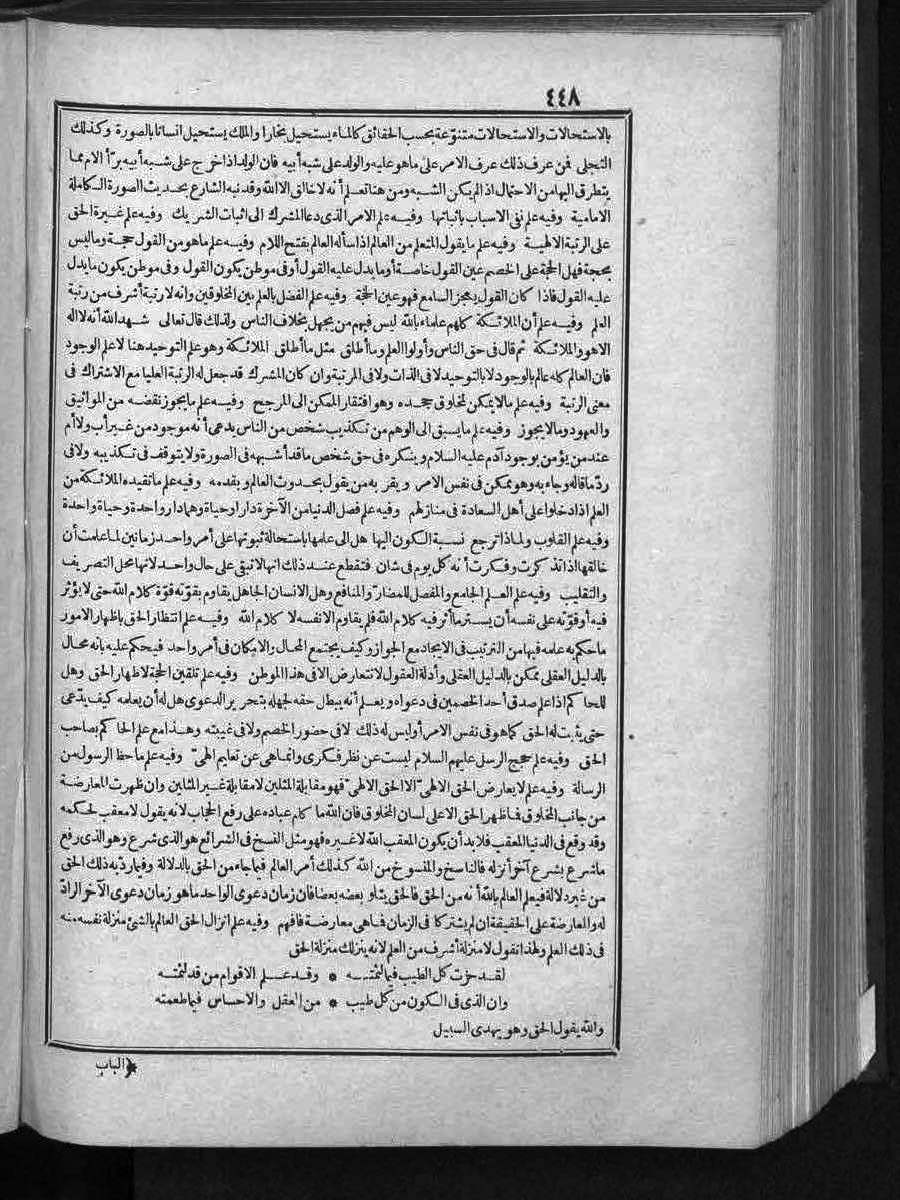 ٤٤٨
بالاستحالات والاستحالات متنوّعة بحسب الحقائق كالماء يستحيل بخارا والملك يستحيل انسانا بالصورة وكذلك
التجلى فمن عرف ذلك عرف الامر على ماهو عليه والولد على شبه أبيه فان الولد اذا خرج على شبه أبيه برّأ الام مما
يتطرق اليها من الاحتمال اذ لم يكن الشبه ومن هنا تعلم أنه لا خالق الا الله وقد نبه الشارع بحديث الصورة الكاملة
الامامية وفيه علم نفى الاسباب باثباتها وفيه علم الامر الذى دعا المشرك الى اثبات الشريك وفيه علم غيرة الحق
على الرتبة الالهية وفيه علم ما يقول المتعلم من العالم اذا سأله العالم بفتح اللام وفيه علم ماهو من القول حجة وما ليس
بحجة فهل الحجة على الخصم عين القول خاصة أو ما يدل عليه القول أو فى موطن يكون القول وفى موطن يكون ما يدل
عليه القول فاذا كان القول يعجز السامع فهو عين الحجة وفيه علم الفضل بالعلم بين المخلوقين وانه لا رتبة أشرف من رتبة
العلم وفيه علم أن الملائكة كلهم علماء بالله ليس فيهم من يجهل بخلاف الناس ولذلك قال تعالى شهد الله أنه لا اله
الا هو والملائكة ثم قال فى حق الناس وأولوا العلم وما أطلق مثل ما أطلق الملائكة وهو علم التوحيد هنا لا علم الوجود
فان العالم كله عالم بالوجود لا بالتوحيد لا فى الذات ولا فى المرتبة وان كان المشرك قد جعل له الرتبة العليا مع الاشتراك فى
معنى الرتبة وفيه علم ما لا يمكن لمخلوق جحده وهو افتقار الممكن الى المرجح وفيه علم ما يجوز نقضه من المواثيق
والعهود وما لا يجوز وفيه علم ما يسبق الى الوهم من تكذيب شخص من الناس يدعى أنه موجود من غير أب ولا أم
عند من يؤمن بوجود آدم عليه السلام وينكره فى حق شخص ما قد أشبهه فى الصورة ولا يتوقف فى تكذيبه ولا فى
ردّ ما قاله وجاء به وهو ممكن فى نفس الامر ويقر به من يقول بحدوث العالم وبقدمه وفيه علم ما تفيده الملائكة من
العلم اذا دخلوا على أهل السعادة فى منازلهم وفيه علم فصل الدنيا من الآخرة دارا وحياة وهما دار واحدة وحياة واحدة
وفيه علم القلوب ولماذا ترجع نسبة السكون اليها هل الى علمها باستحالة ثبوتها على أمر واحد زمانين لما علمت أن
خالقها اذا تذكرت وفكرت أنه كل يوم فى شان فتقطع عند ذلك انها لا تبقى على حال واحد لانها محل التصريف
والتقليب وفيه علم العلم الجامع والمفصل للمضارّ والمنافع وهل الانسان الجاهل يقاوم بقوّته قوّة كلام الله حتى لا يؤثر
فيه أو قوّته على نفسه أن يستر ما أثر فيه كلام الله فلم يقاوم الا نفسه لا كلام الله وفيه علم انتظار الحق باظهار الامور
ما حكم به علمه فيها من الترتيب فى الايجاد مع الجواز وكيف يجتمع المحال والامكان فى أمر واحد فيحكم عليه بانه محال
بالدليل العقلى ممكن بالدليل العقلى وأدلة العقول لا تتعارض الا فى هذا الموطن وفيه علم تلقين الحجة لاظهار الحق وهل
للحاكم اذا علم صدق أحد الخصمين فى دعواه ويعلم أنه يبطل حقه لجهله بتحرير الدعوى هل له أن يعلمه كيف يدّعى
حتى يثبت له الحق كما هو فى نفس الامر أو ليس له ذلك لا فى حضور الخصم ولا فى غيبته وهذا مع علم الحاكم بصاحب
الحق وفيه علم حجج الرسل عليهم السلام ليست عن نظر فكرى وانما هى عن تعليم الهىّ وفيه علم ما حظ الرسول من
الرسالة وفيه علم لا يعارض الحق الالهىّ الا الحق الالهىّ فهو مقابلة المثلين لا مقابلة غير المثلين وان ظهرت المعارضة
من جانب المخلوق فما ظهر الحق الا على لسان المخلوق فان الله ما كلم عباده على رفع الحجاب لانه يقول لا معقب لحكمه
وقد وقع فى الدنيا المعقب فلا بد أن يكون المعقب الله لا غيره فهو مثل النسخ فى الشرائع هو الذى شرع وهو الذى رفع
ما شرع بشرع آخر أنزله فالناسخ والمنسوخ من الله كذلك أمر العالم فيما جاء من الحق بالدلالة وفيما ردّ به ذلك الحق
من غير دلالة فيعلم العالم بالله أنه من الحق فالحق يتلو بعضه بعضا فان زمان دعوى الواحد ما هو زمان دعوى الآخر الرادّ
له والمعارضة على الحقيقة ان لم يشتركا فى الزمان فما هى معارضة فافهم وفيه علم انزال الحق العالم بالشئ منزلة نفسه منه
فى ذلك العلم ولهذا نقول لا منزلة أشرف من العلم لانه ينزلك منزلة الحق
لقد حزت كل الطيب فيما لثمته * وقد علم الاقوام من قد لثمته
وان الذى فى الكون من كل طيب * من العقل والاحساس فيما طعمته
والله يقول الحق وهو يهدى السبيل
﴿الباب